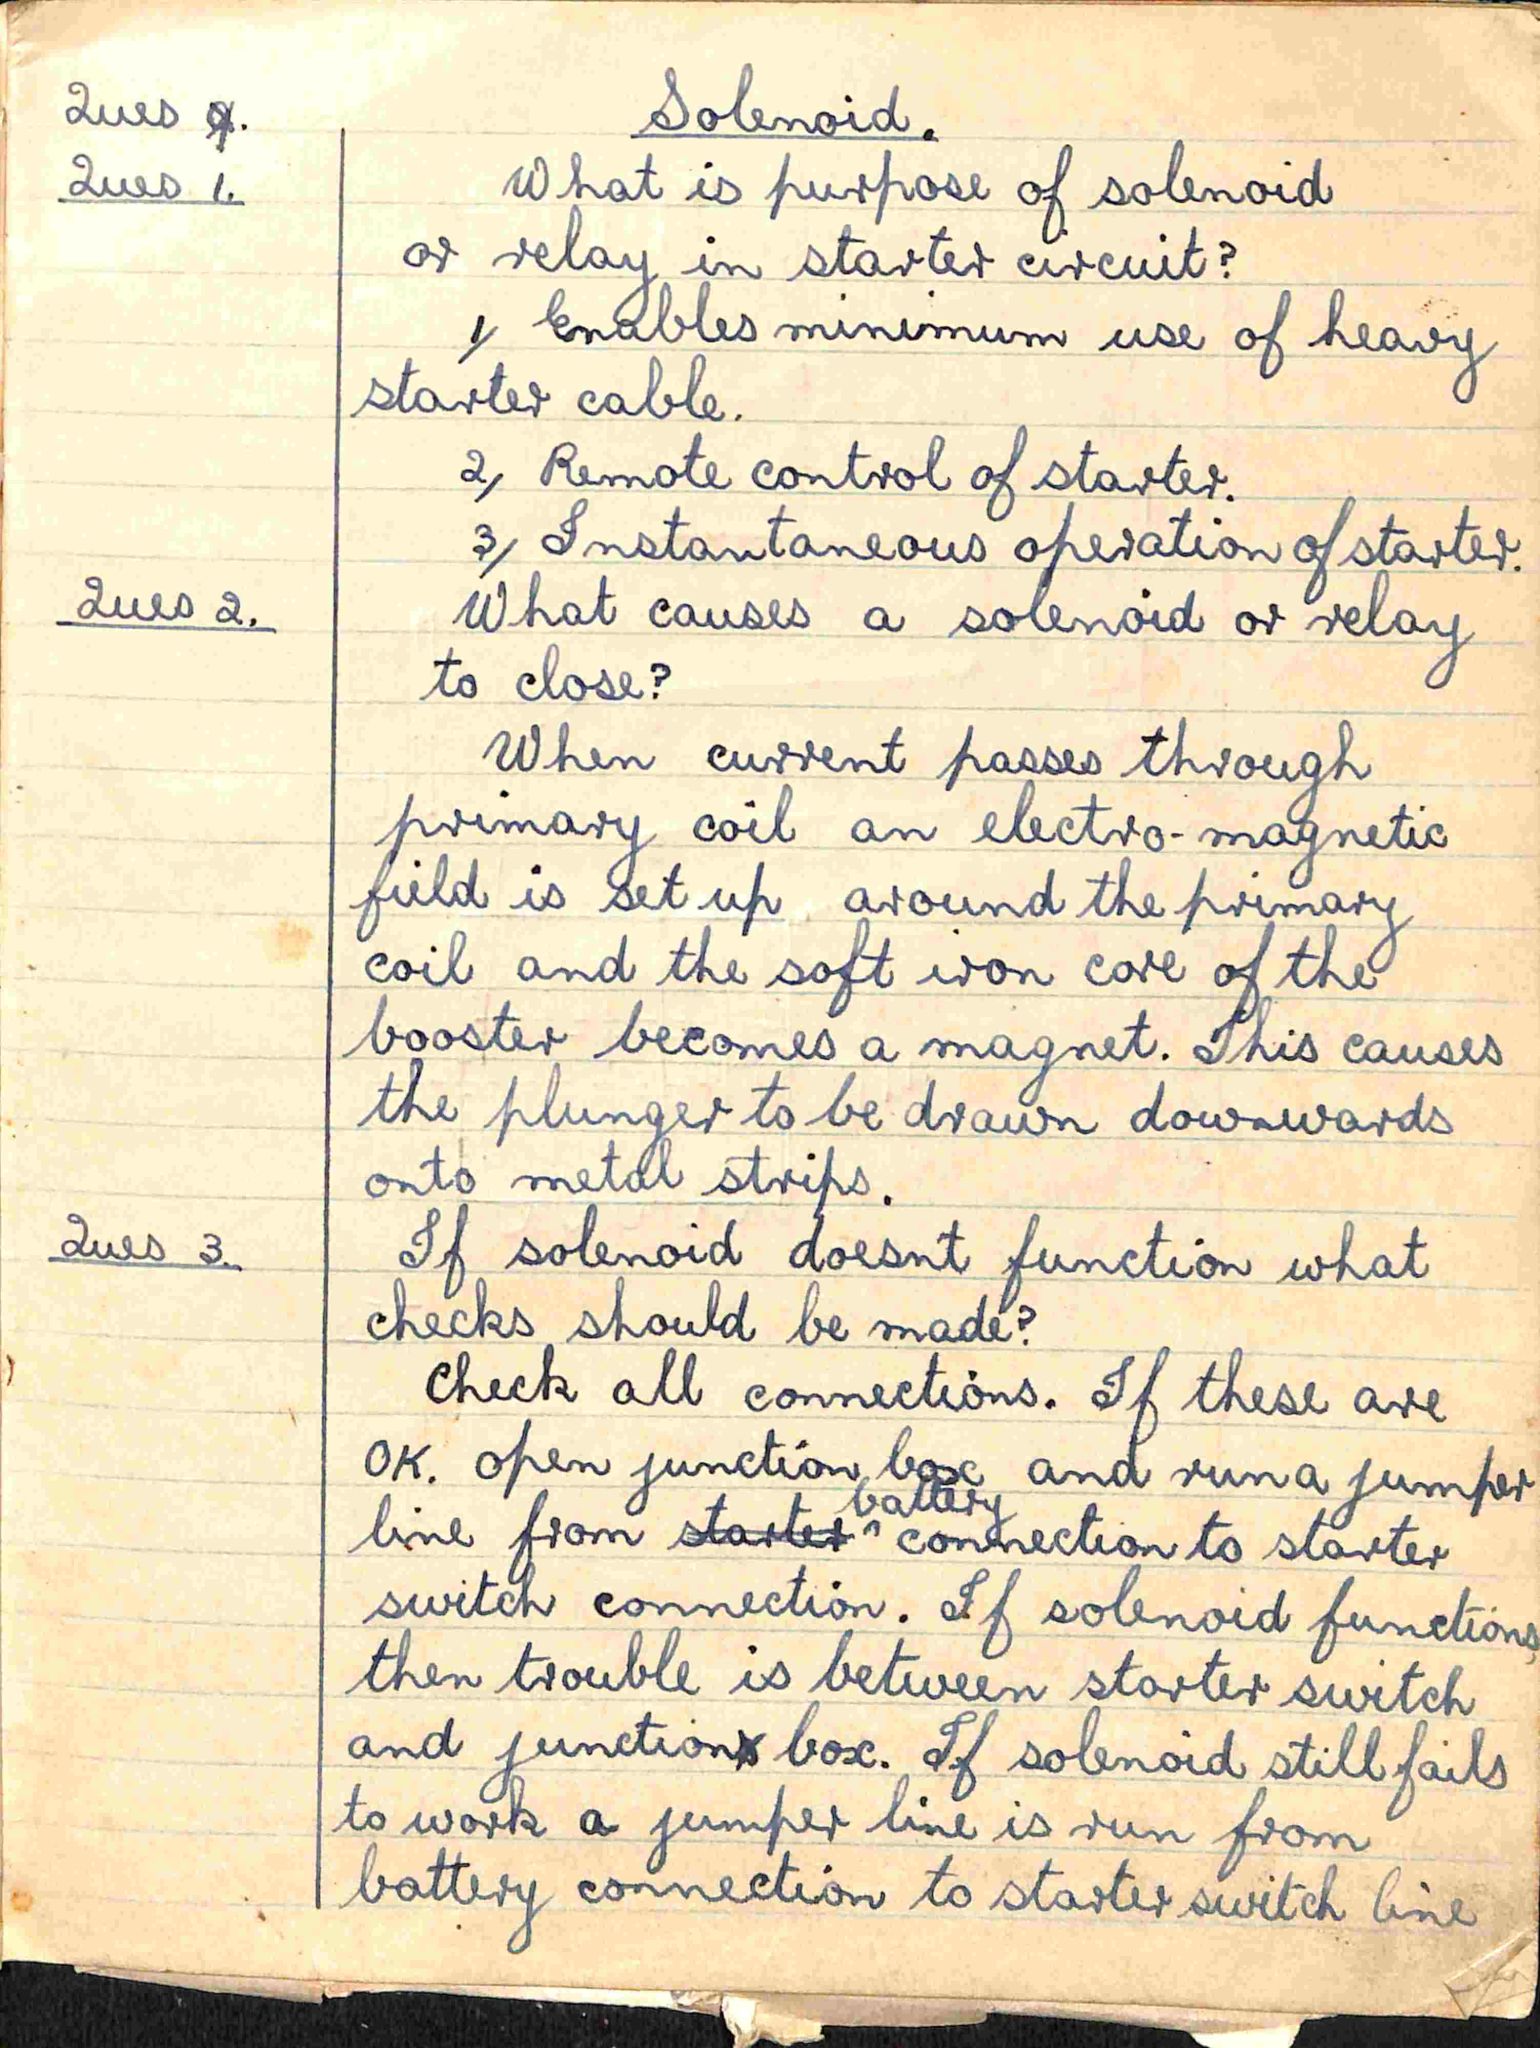 Ques 9. Solenoid.
Ques 1. What is purpose of solenoid
or relay in starter circuit?
1, Enables minimum use of heavy
starter cable.
2, Remote control of starter.
3, Instantaneous operation of starter.
Ques 2. What causes a solenoid or relay
to close?
When current passes through
primary coil an electro-magnetic
field is set up around the primary
coil and the soft iron core of the
booster becomes a magnet. This causes
the plunger to be drawn downwards
onto metal strips.
Ques 3. If solenoid doesnt function what
checks should be made?
Check all connections. If these are
OK. open junction box and run a jumper
battery
line from starter ^ connection to starter
switch connection. If solenoid functions,
then trouble is between starter switch
and junction box. If solenoid still fails
to work a jumper line is run from
battery connection to starter switch line